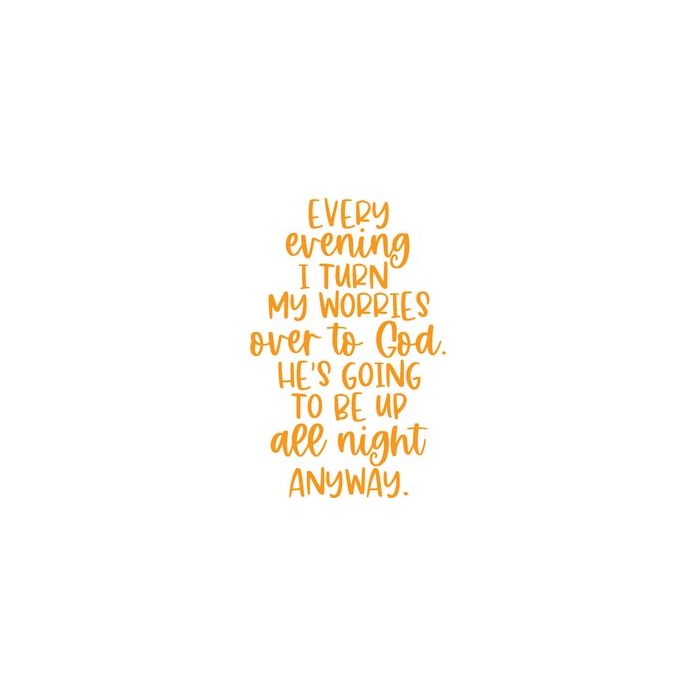 EVERY
evening
I TURN
MY WORRIES
over to God.
HE'S GOING
TO BE UP
all night
ANYWAY.